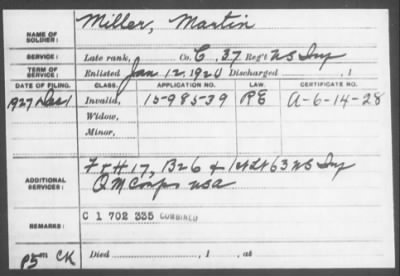 NAME OF SOLDIER: Miller, Martin
SERVICE: Late rank, Co. C, 37 Reg't US Inf
TERM OF SERVICE: Enlisted Jan 12, 1920 Discharged , 1
DATE OF FILING. CLASS. APPLICATION NO. LAW. CERTIFICATE NO.
1927 Invalid, 15-985-39 RE A-6-14-28
Widow,
Minor,
ADDITIONAL SERVICES: F & H 17, B 26 & 1st Lt 63 US Inf
QM Corps USA
REMARKS: C 1 702 335 COMBINED
CK Died , 1 , at